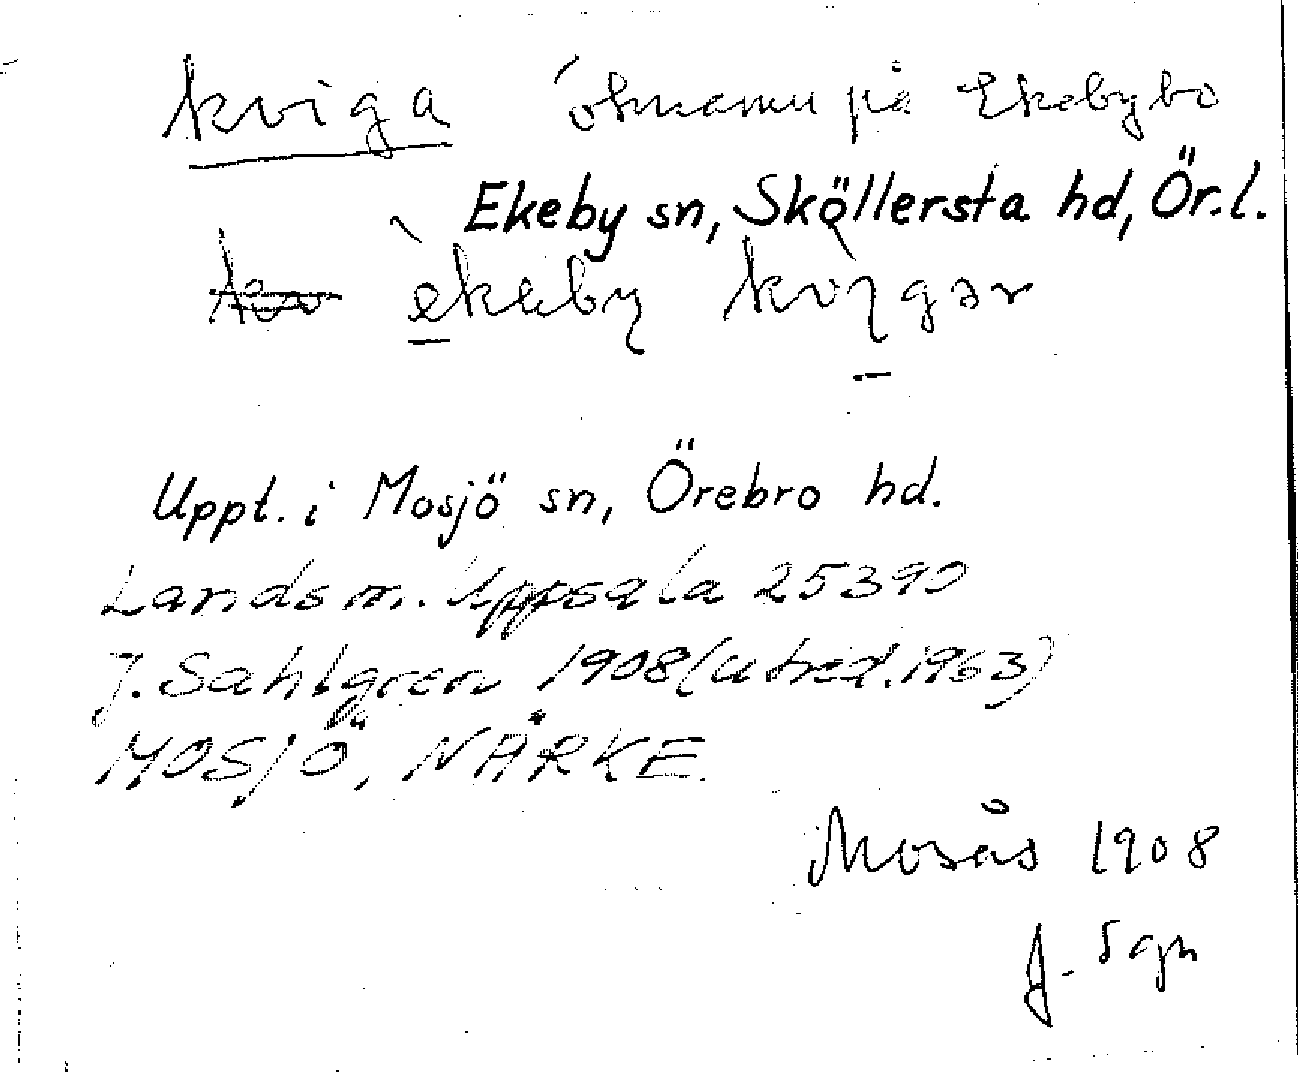 kviga öknamn på Ekebybo
Ekeby sn, Sköllersta hd, Ör.l.
ekeby kvigər
Uppt. i Mosjö sn, Örebro hd.
Landsm. Uppsala 25390
J. Sahlgren 1908 (utred. 1963)
MOSJÖ, NÄRKE.
Mosås 1908
J. Sgn